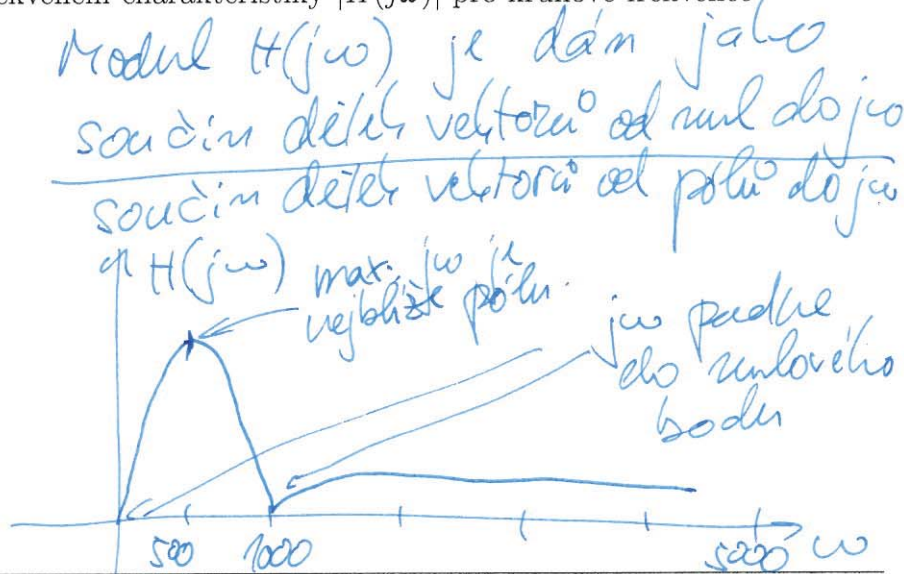 frekvenční charakteristiky |H(jω)| pro kruhové frekvence
Modul H(jω) je dán jako
součin délek vektorů od nul do jω
součin délek vektorů od pólů do jω
H(jω)
max. jω je
nejblíže pólu.
jω padne
do nulového
bodu
500 1000 5000 ω